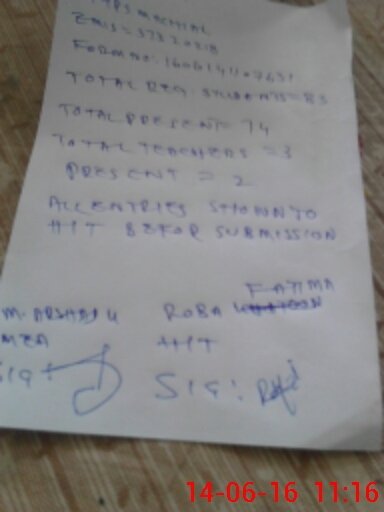 EMIS = 37320213
FORM NO. 1606141107631
TOTAL REG. STUDENTS = 83
TOTAL PRESENT = 74
TOTAL TEACHERS = 3
PRESENT = 2
ALL ENTRIES SHOWN TO
HIT BEFOR SUBMISSION
FATIMA
M. ARSHAD U
ROBA
MEA
HIT
SIG:
SIG:
14-06-16 11:16